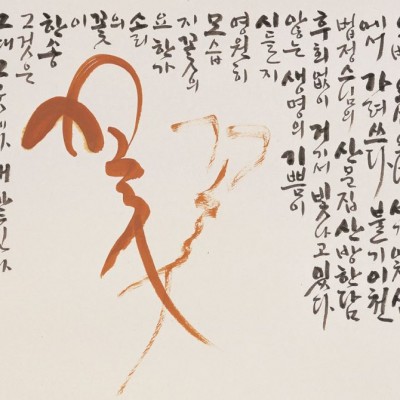 그것은
한송
이
꽃
의
소리
요한가
지꽃의
모습
영원히
시들지
않는 생명의 기쁨이
후회없이 거기서 빛나고 있다
법정스님의 산문집 산방한담
에서 가려쓰다 불기이천
꽃